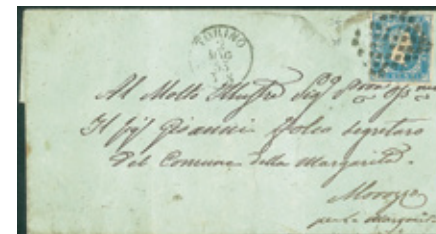 TORINO
2
AGO
53
Al Molto Illustre Sig.
Il Sig. Giovanni Dolce Segretaro
Del Comune della Margarita.
Morozzo
per la Margarita